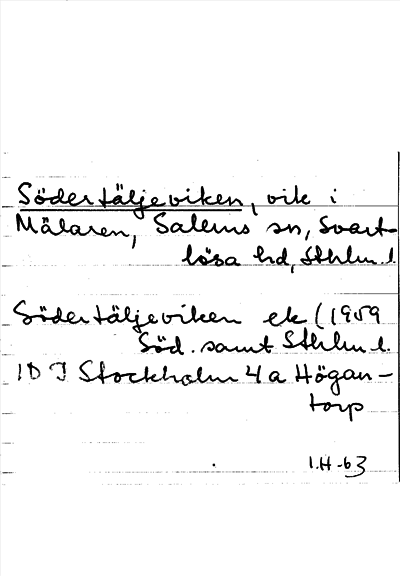 Södertäljeviken, vik i
Mälaren, Salems sn, Svart-
lösa hd, Sthlm.l.
Södertäljeviken ek (1959
Söd. samt Sthlm l.
10 I Stockholm 4a Högan-
torp
I.H-63